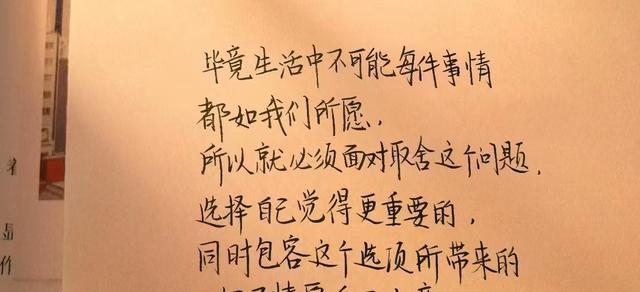 毕竟生活中不可能每件事情
都如我们所愿，
所以就必须面对取舍这个问题，
选择自己觉得更重要的，
同时包容这个选项所带来的